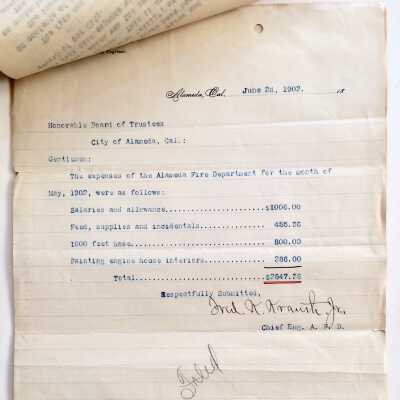 Engineer.
Alameda, Cal. June 1902. 18
Honorable Board of Trustees
City of Alameda, Cal.:
Gentlemen:
The expenses of the Alameda Fire Department for the month of
May, 1902, were as follows:
Salaries and allowance......................$1006.00
Feed, supplies and incidentals.................. 455.26
1000 feet hose.................................. 800.00
Painting engine house interiors................. 286.00
Total............................$2547.26
Respectfully Submitted,
Fred K. Krauth, Jr.
Chief Eng. A. F. D.
Filed